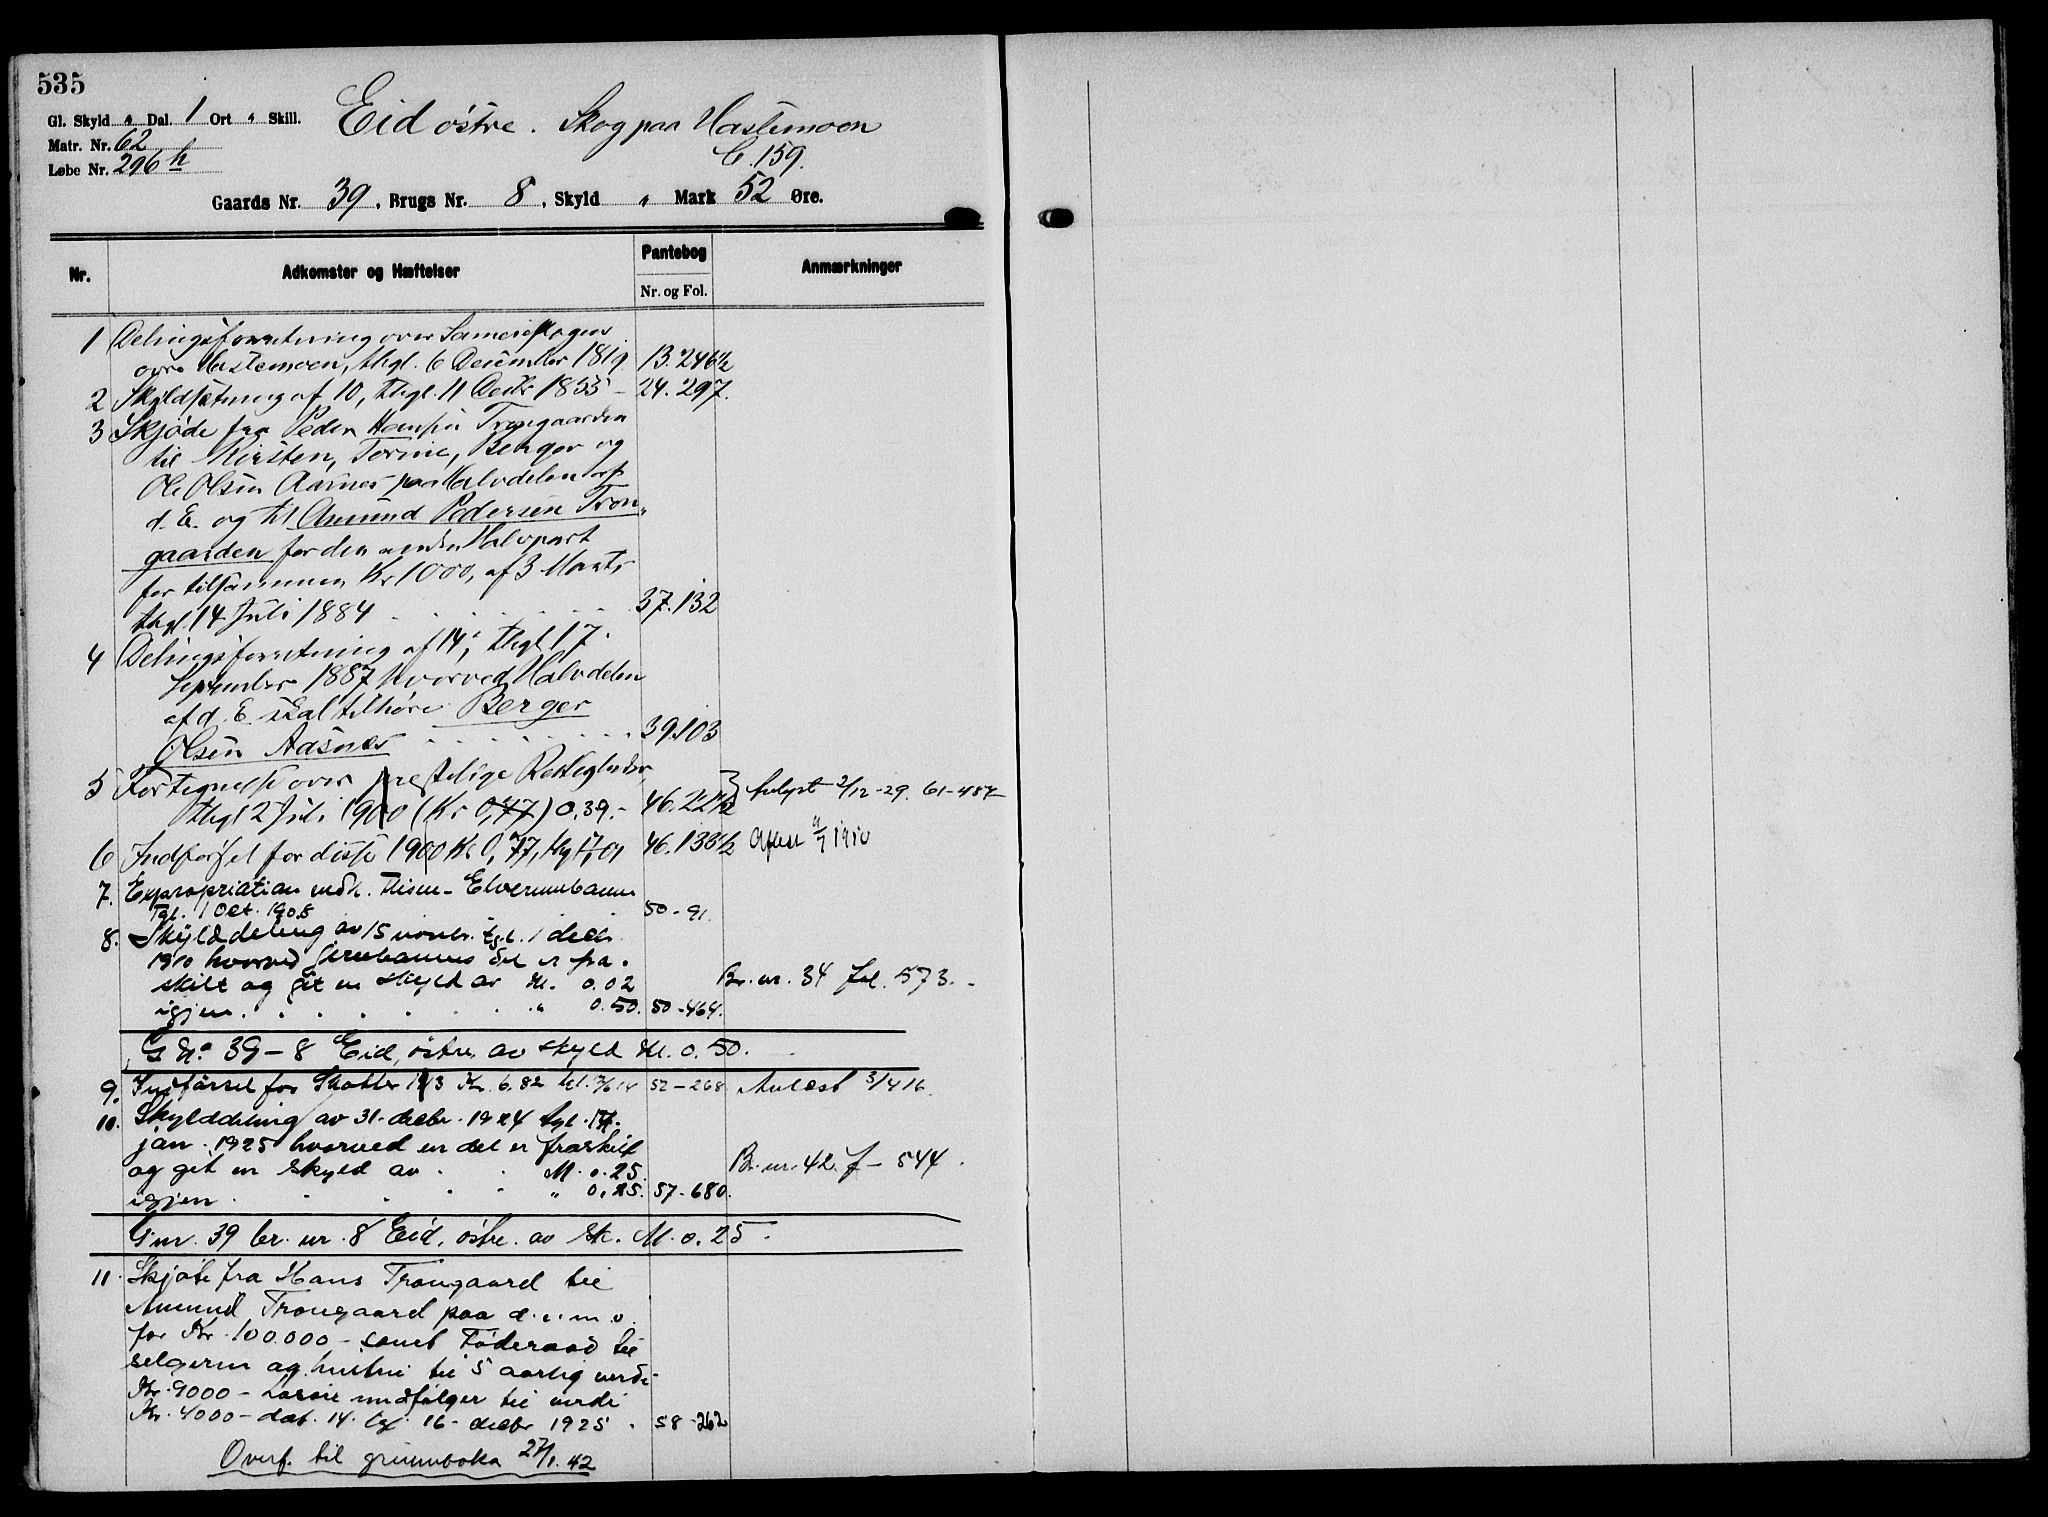 535
Gl. Skyld " Dal. 1 Ort " Skill.
Eid østre. Skog paa Hastemoen
Matr. Nr. 62
C. 159.
Løbe Nr. 296 h
Gaards Nr. 39, Brugs Nr. 8, Skyld " Mark 52 Øre.
Nr. Adkomster og Hæftelser Pantebog Nr. og Fol. Anmærkninger
1 Delingsforretning over Sameieskogen
Hastemoen, thgl. 6 December 1819 13.246½
2 Skyldsetning af 10, thgl. 11 Decbr 1855 - 24.297.
3 Skjøde fra Peder Hansen Trongaarden
til Kirsten, Torine, Berger og
Ole Olsen Aasnes paa Halvdelen af
d. E. og til Amund Pedersen Tron„
gaarden for den anden Halvpart
for tilsammen Kr 1000, af 3 Marts
thgl. 14 Juli 1884 . . . . . 37.132
4 Delingsforretning af 14, thgl 17.
September 1887 hvorved Halvdelen
af d. E. skal tilhøre Berger
Olsen Aasnes . . . . . . 39.103
5 Fortegnelse over Rettigheder
thgl 2 Juli 1900 (Kr 0,47) 0,39.- 46.22½ } Avlyst 2/12-29. 61-487
6 Indførsel for disse 1900 Kr 0,77, 46.138½ 1910
7. Expropriation vedk. Elverumbanen
Tgl. 1 Oct. 1908 50-91.
8. Skylddeling av 15 novbr. tgl. 1 decbr.
1910 hvorved Jernbanens del er fra-
skilt og git en skyld av M. 0.02 Br. nr. 34 fol. 573.-
igjen. . . . . . . " 0.50. 50-464.
G No 39-8 Eid, østre, av skyld M. 0.50.
9. Indførsel for Skatter 1913 Kr. 6.82 52-268 Avlæst 3/4 16.
10. Skylddeling av 31. decbr. 1924 tgl.
jan. 1925 hvorved en del er fraskilt
og git en skyld av . . M. 0.25. Br. nr. 42 f- 544.
igjen . . . . . " 0.25. 57-680.
Gnr. 39 br. nr. 8 Eid, østre. av sk. M. 0.25.
11. Skjøte fra Hans Trongaard til
Amund Trongaard paa d. e. m. v.
for Kr. 100.000 - samt Føderaad til
selgeren og hustru til 5 aarlig verdi
Kr. 9000 - Løsøre medfølger til verdi
Kr. 4000 - dat. 14. tgl. 16. decbr 1925 . 58-262
Overf. til grunnboka 27/1.42